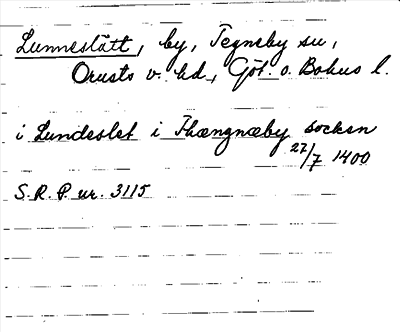 Lunneslätt, by, Tegneby sn,
Orusts v. hd, Göt. o. Bohus l.
i Lundeslet i Thængnæby socken
27/7 1400
S.R.P. nr. 3115